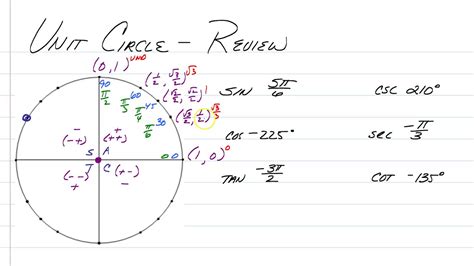 UNIT CIRCLE – REVIEW
(0,1) UND
(1/2, √3/2) √3
(√2/2, √2/2) 1
(√3/2, 1/2) √3/3
(1,0) 0
90 π/2
60 π/3
45 π/4
30 π/6
0 0
– (-+)
+ (++)
S A
T C
(--) +
(+-) –
SIN 5π/6
CSC 210°
COS -225°
SEC -π/3
TAN -3π/2
COT -135°